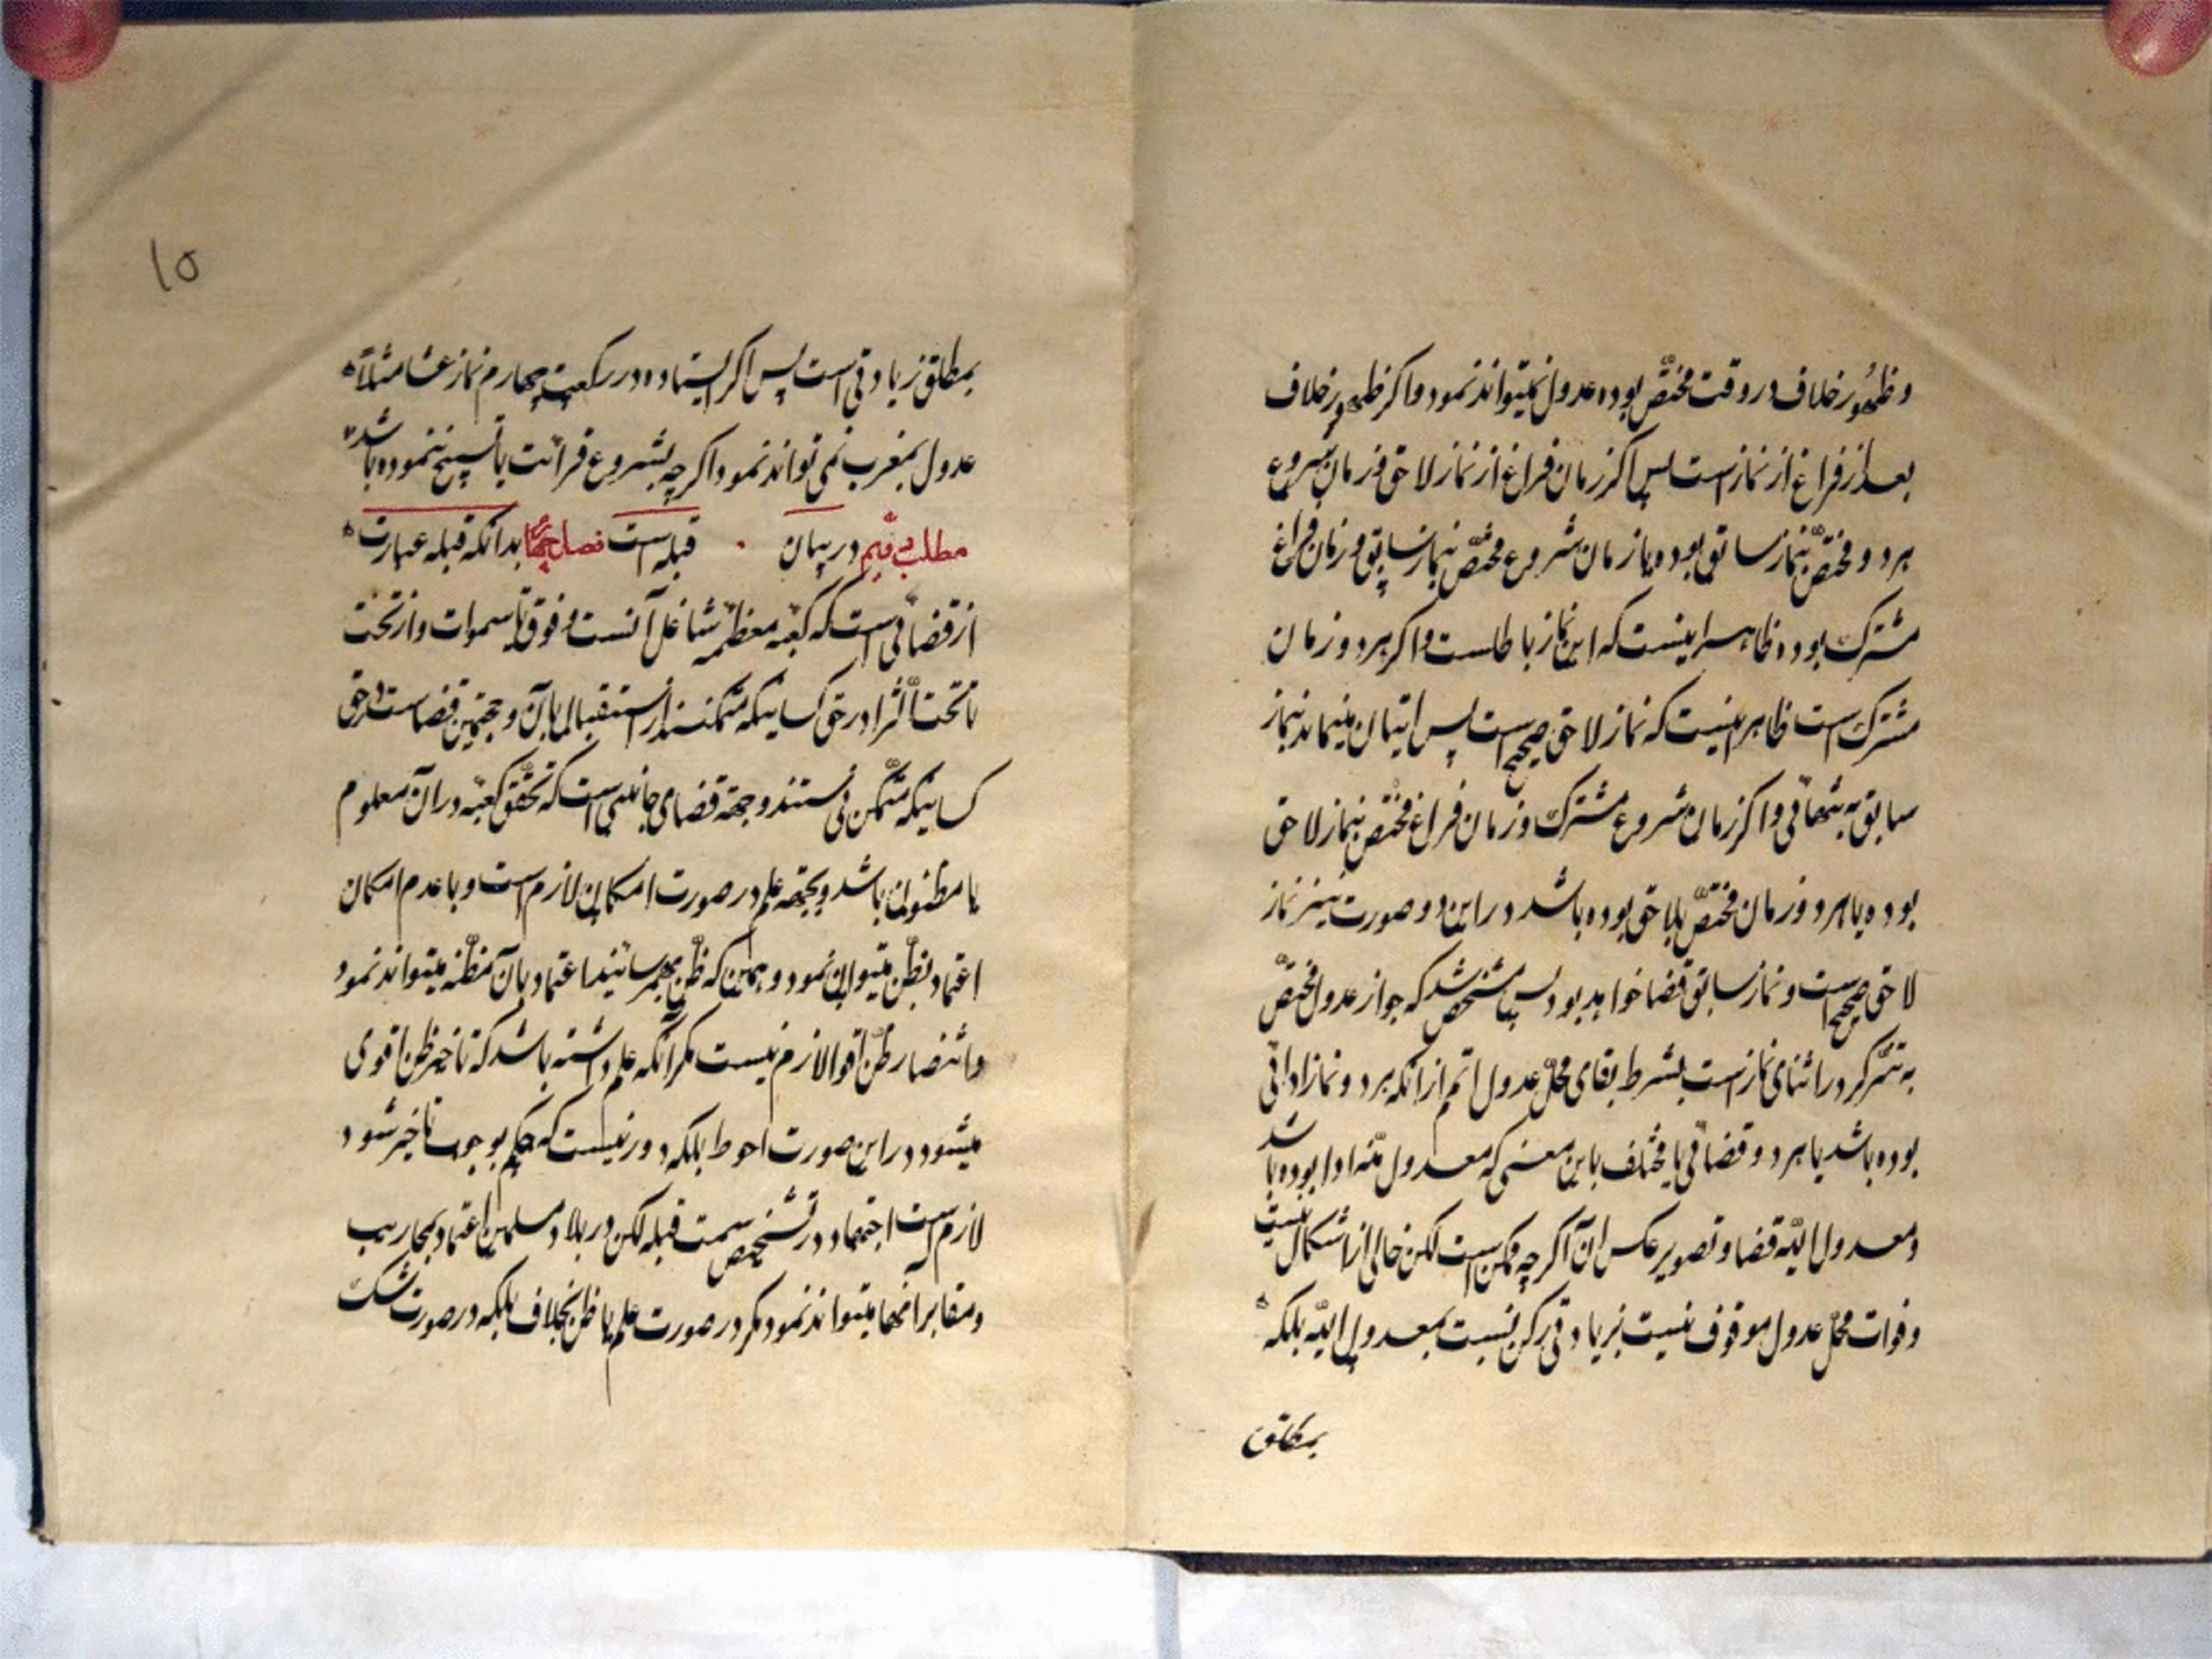 وظهور خلاف در وقت مختصّ بوده عدول نمیتواند نمود و اکر ظهور خلاف
بعد از فراغ از نماز است پس اکر زمان فراغ از نماز لاحق و زمان شروع
هر دو مختصّ بنماز سابق بوده یا زمان شروع مختصّ بنماز سابق و زمان فراغ
مشترک بوده ظاهر اینست که این نماز باطلست و اکر هر دو زمان
مشترک است ظاهر اینست که نماز لاحق صحیح است پس اتیان مینماید بنماز
سابق به تنهائی و اکر زمان شروع مشترک و زمان فراغ مختص بنماز لاحق
بوده یا هر دو زمان مختصّ بلاحق بوده باشد در این دو صورت نیز نماز
لاحق صحیح است و نماز سابق قضا خواهد بود پس مشخص شد که جواز عدول مختصّ
به تذکر در اثنای نماز است بشرط بقای محلّ عدول اعم از آنکه هر دو نماز ادائی
بوده باشد یا هر دو قضائی یا مختلف باین معنی که معدول منه ادا بوده باشد
و معدول الیه قضا و تصویر عکس ان اکر چه ممکن است لکن خالی از اشکال نیست
و فوات محلّ عدول موقوف نیست بزیادتی رکن نسبت بمعدول الیه بلکه
بمطلق
۱۵
بمطلق زیادتی است پس اکر ایستاده در رکعت چهارم نماز عشا مثلاً
عدول بمغرب نمی تواند نمود اکر چه بشروع قرائت یا تسبیح ننموده باشد
مطلب دویّم در بیان قبله است فصل بدانکه قبله عبارت
از فضائی است که کعبه معظمه شاغل آنست و فوق تا سموات و از تحت
تا تحت الثرا در حق کسانیکه متمکنند از استقبال بآن و جهة این فضاست در حق
کسانیکه متمکن نیستند و جهة فضای جانبی است که تحقق کعبه در ان معلوم
یا مظنون باشد و علم در صورت امکان لازم است و با عدم امکان
اعتماد بظن میتوان نمود و همین که ظن بهم رسانیند اعتماد بآن مظنه میتواند نمود
و انتظار ظن اقوا لازم نیست مکر آنکه علم داشته باشد که تاخیر ظن اقوی
میشود در این صورت احوط بلکه دور نیست که حکم بوجوب تاخیر شود
لازم است اجتهاد در تشخیص سمت قبله لکن در بلاد مسلمین اعتماد بمحاریب
و مقابر آنها میتواند نمود مکر در صورت علم یا ظن بخلاف بلکه در صورت شک